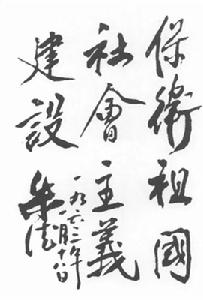 保衛祖國
社會主義
建設
朱德
一九六三年